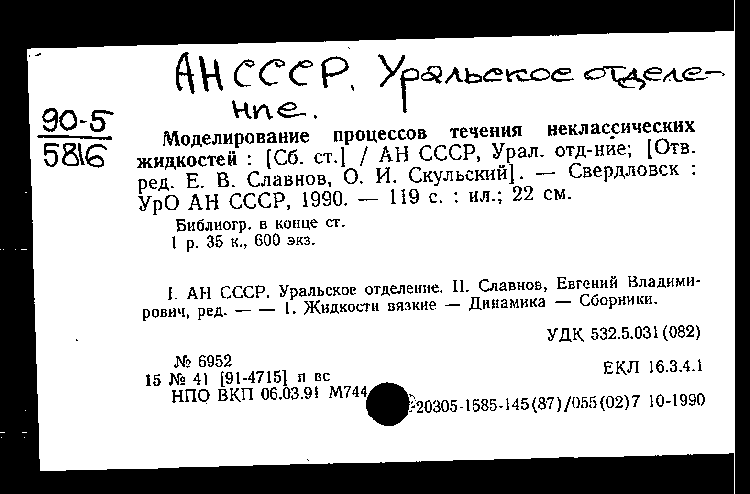 АН СССР. Уральское отделе-
ние.
90-5
5816
Моделирование процессов течения неклассических
жидкостей : [Сб. ст.] / АН СССР, Урал. отд-ние; [Отв.
ред. Е. В. Славнов, О. И. Скульский]. — Свердловск :
УрО АН СССР, 1990. — 119 с. : ил.; 22 см.
Библиогр. в конце ст.
1 р. 35 к., 600 экз.
I. АН СССР. Уральское отделение. II. Славнов, Евгений Владими-
рович, ред. — — 1. Жидкости вязкие — Динамика — Сборники.
УДК 532.5.031(082)
№ 6952
ЕКЛ 16.3.4.1
15 № 41 [91-4715] п вс
НПО ВКП 06.03.91 М744
20305-1585-145(87)/055(02)7 10-1990